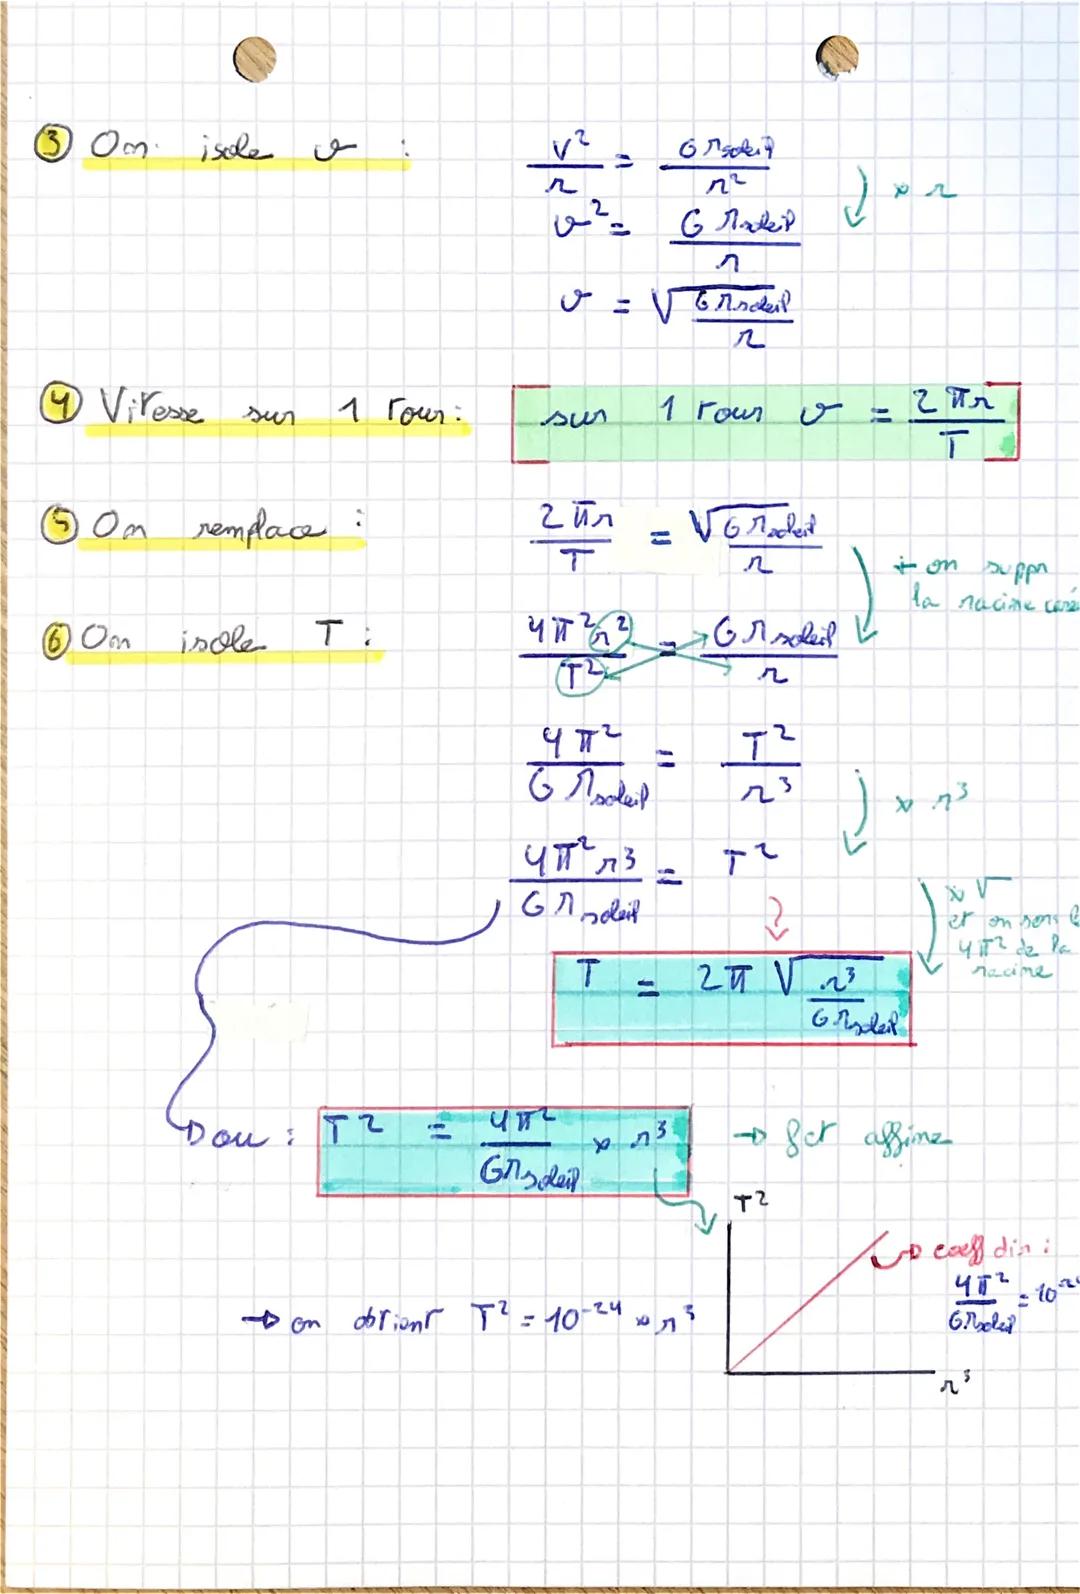 ③ On isole v :
v²/r = G Msoleil/r²
× r
v² = G Msoleil/r
v = √(G Msoleil/r)
④ Vitesse sur 1 tour :
sur 1 tour v = 2πr/T
⑤ On remplace :
2πr/T = √(G Msoleil/r)
+ on suppr
la racine carré
⑥ On isole T :
4π²r²/T² = G Msoleil/r
4π²/G Msoleil = T²/r³
× r³
4π²r³/G Msoleil = T²
× √
et on sort l
4π² de la
racine
T = 2π √(r³/G Msoleil)
ou : T² = 4π²/G Msoleil × r³
→ fct affine
T²
coeff dir :
4π²/G Msoleil = 10⁻²
→ on obtient T² = 10⁻²⁴ × r³
r³